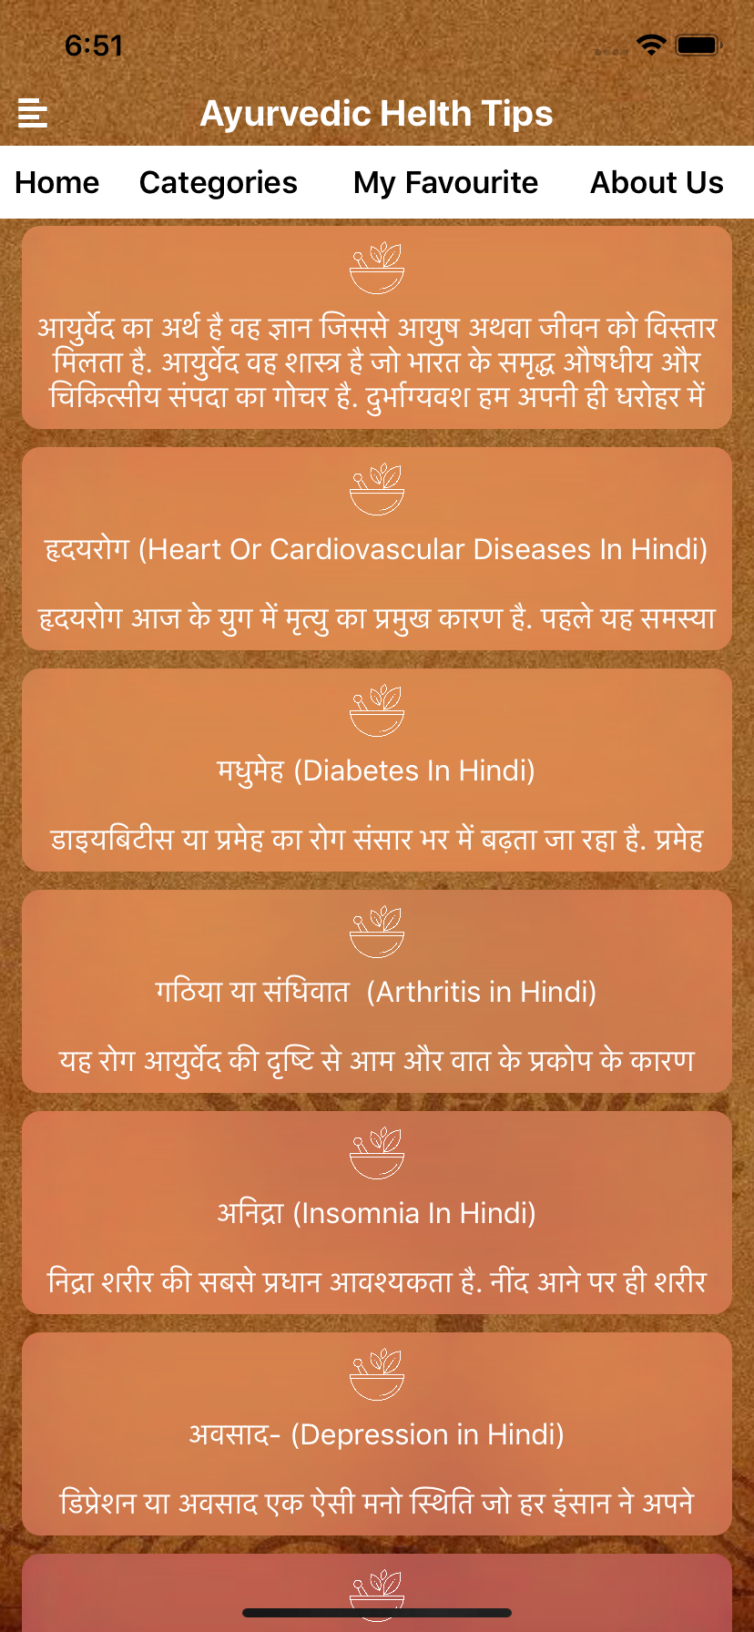 6:51
Ayurvedic Helth Tips
Home Categories My Favourite About Us
आयुर्वेद का अर्थ है वह ज्ञान जिससे आयुष अथवा जीवन को विस्तार
मिलता है. आयुर्वेद वह शास्त्र है जो भारत के समृद्ध औषधीय और
चिकित्सीय संपदा का गोचर है. दुर्भाग्यवश हम अपनी ही धरोहर में
हृदयरोग (Heart Or Cardiovascular Diseases In Hindi)
हृदयरोग आज के युग में मृत्यु का प्रमुख कारण है. पहले यह समस्या
मधुमेह (Diabetes In Hindi)
डाइयबिटीस या प्रमेह का रोग संसार भर में बढ़ता जा रहा है. प्रमेह
गठिया या संधिवात (Arthritis in Hindi)
यह रोग आयुर्वेद की दृष्टि से आम और वात के प्रकोप के कारण
अनिद्रा (Insomnia In Hindi)
निद्रा शरीर की सबसे प्रधान आवश्यकता है. नींद आने पर ही शरीर
अवसाद- (Depression in Hindi)
डिप्रेशन या अवसाद एक ऐसी मनो स्थिति जो हर इंसान ने अपने